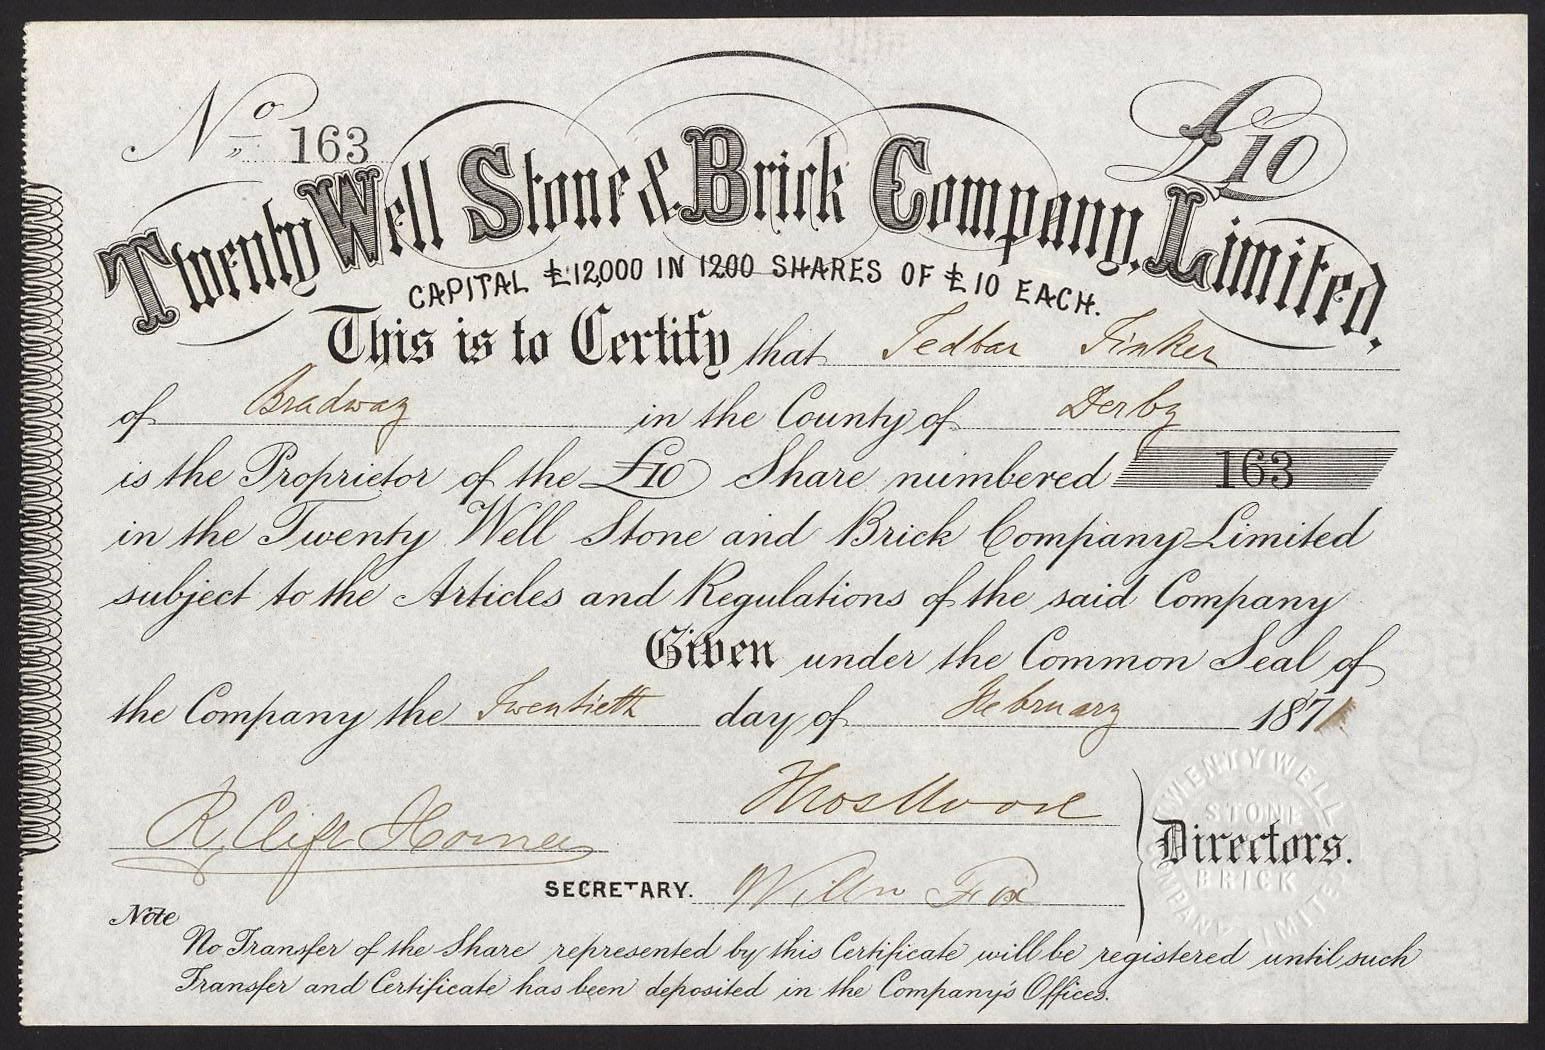 No 163
£10
Twenty Well Stone & Brick Company, Limited.
CAPITAL £12,000 IN 1200 SHARES OF £10 EACH.
This is to Certify that Tedbar Tinker
of Bradway in the County of Derby
is the Proprietor of the £10 Share numbered 163
in the Twenty Well Stone and Brick Company Limited
subject to the Articles and Regulations of the said Company
Given under the Common Seal of
the Company the Twentieth day of February 1871
Thos Moore
R. Clift Horner
Directors.
SECRETARY. Willm Fox
TWENTYWELL STONE BRICK COMPANY LIMITED
Note
No Transfer of the Share represented by this Certificate will be registered until such
Transfer and Certificate has been deposited in the Company's Offices.